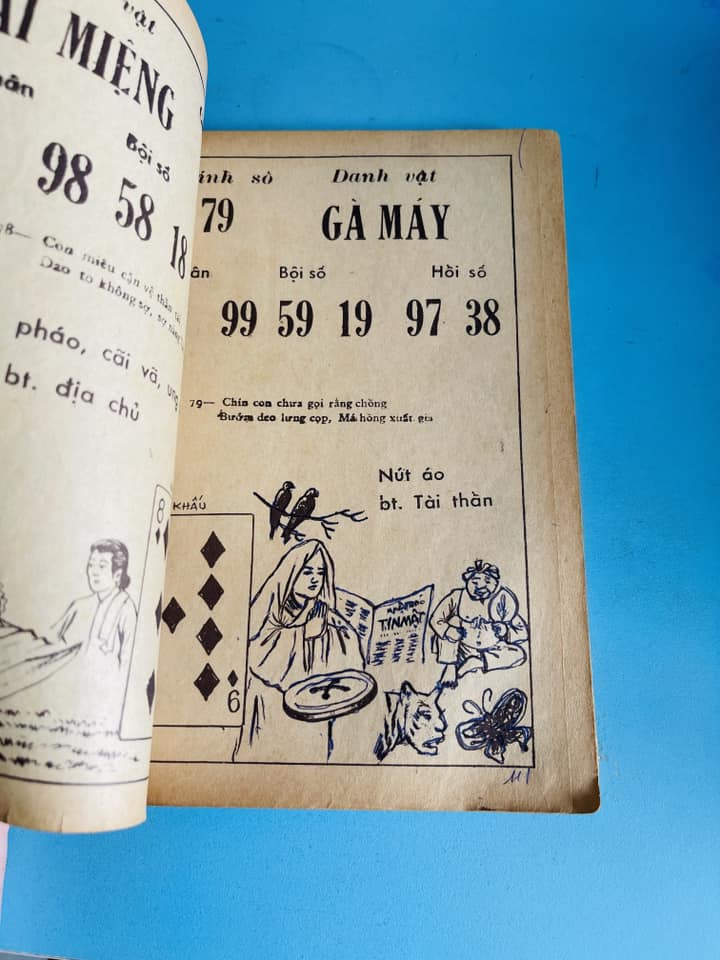 vật
MIỆNG
Bội số
98 58 18
Con miêu cận vệ thần tài
Dao to không sợ, sợ
pháo, cãi vã,
bt. địa chủ
8
số Danh vật
79 GÀ MÁY
Bội số Hồi số
99 59 19 97 38
79— Chín con chưa gọi rằng chồng
Bướm đeo lưng cọp, Má hồng xuất gia
Nút áo
bt. Tài thần
KHẤU
TIN MẬT
9